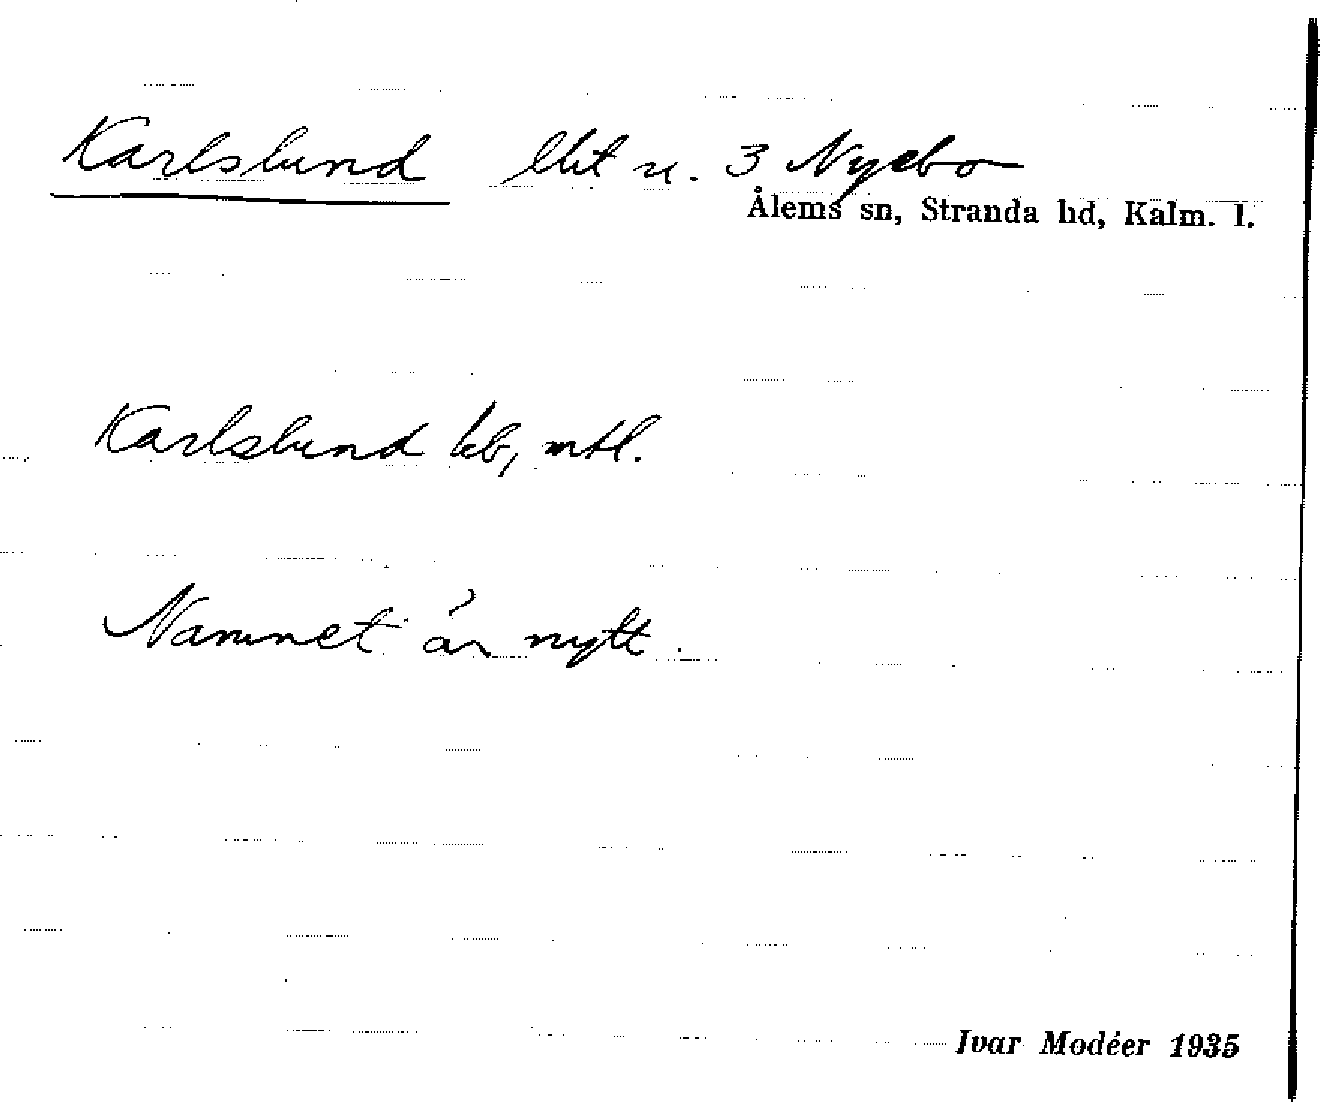 Karlslund lht u. 3 Nyebo
Ålems sn, Stranda hd, Kalm. l.
Karlslund kb, mtl.
Namnet är nytt.
Ivar Modéer 1935